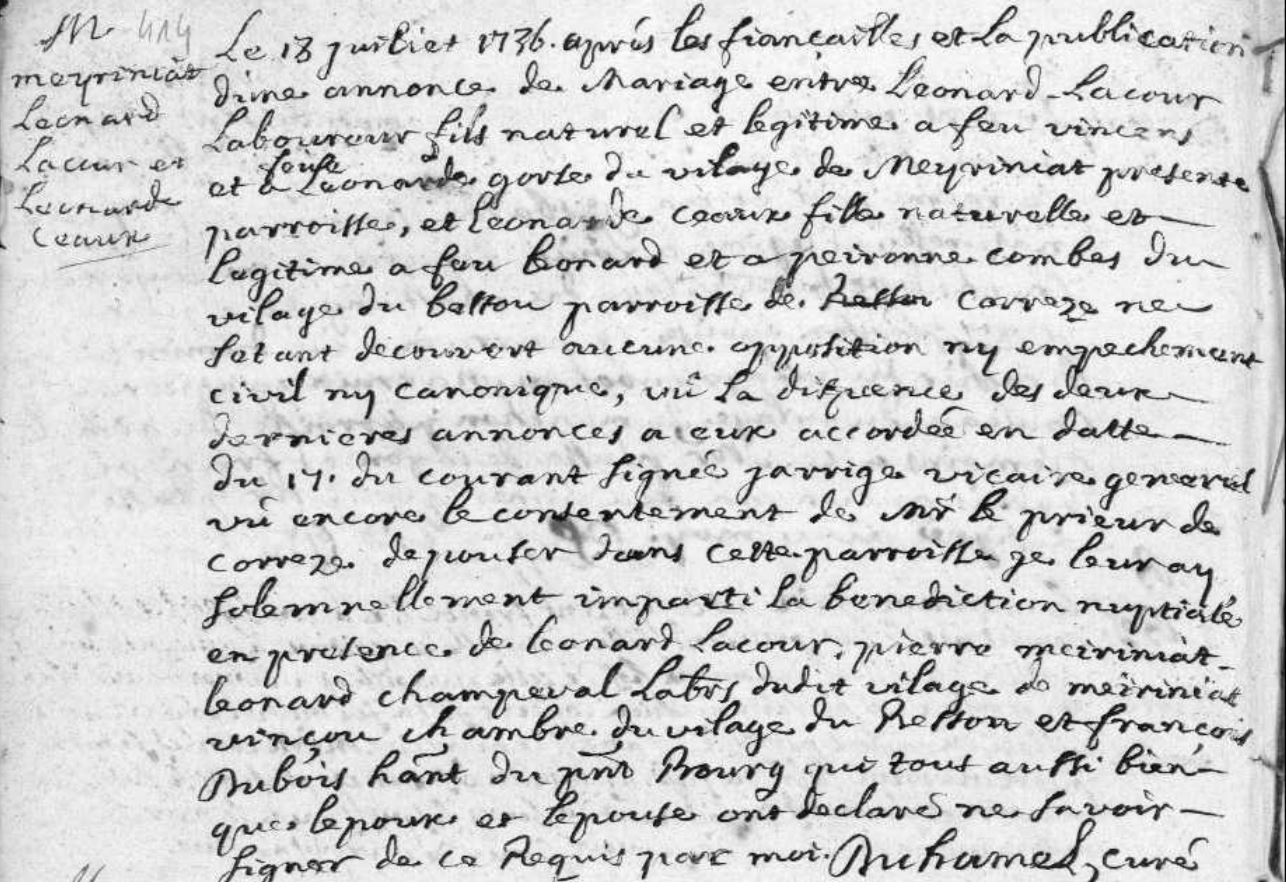 M 414
meyriniat
Leonard
Lacour et
Leonarde
Ceaux
Le 18 juilliet 1736. aprés les fiançailles et La publication
dune annonce de Mariage entre Leonard Lacour
Laboureur fils naturel et legitime a feu vincens
et a feuse Leonarde gorse du vilage de Meyriniat presente
parroisse, et leonarde ceaux fille naturelle et
legitime a feu leonard et a peironne combes du
vilage du besson parroisse de Correze ne
setant decouvert aucune opposition ny empechement
civil ny canonique, vû La dispence des deux
dernieres annonces a eux accordée en datte
du 17. du courant signée jarrige vicaire general
vû encore le consentement de Mr le prieur de
Correze depouser dans cette parroisse je leur ay
solemnellement imparti La benediction nuptiale
en presence de leonard Lacour, pierre meiriniat
leonard champeval Labrs dudit vilage de meiriniat
vinçou chambre du vilage du Resson et françois
Dubois hant du pnt Bourg qui tous aussi bien
que lepoux et lepouse ont declaré ne savoir
signer de ce Requis par moi. Duhamel, curé